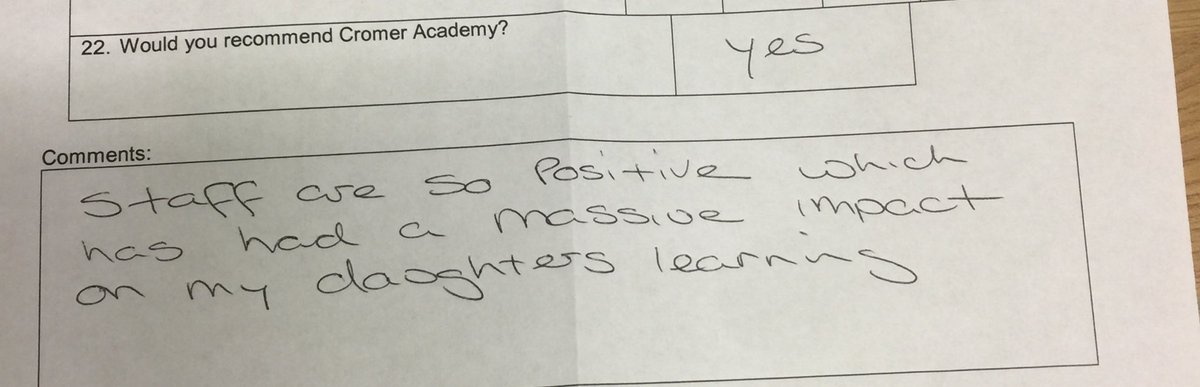 22. Would you recommend Cromer Academy?
yes
Comments:
Staff are so Positive which
has had a massive impact
on my daughters learning